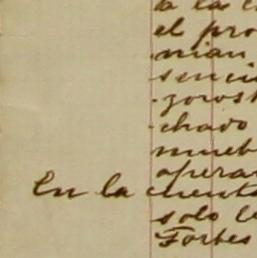 a la c
el pro
nian
senci
goros
chado
mueb
opera
En la cuenta
solo le
Forbes